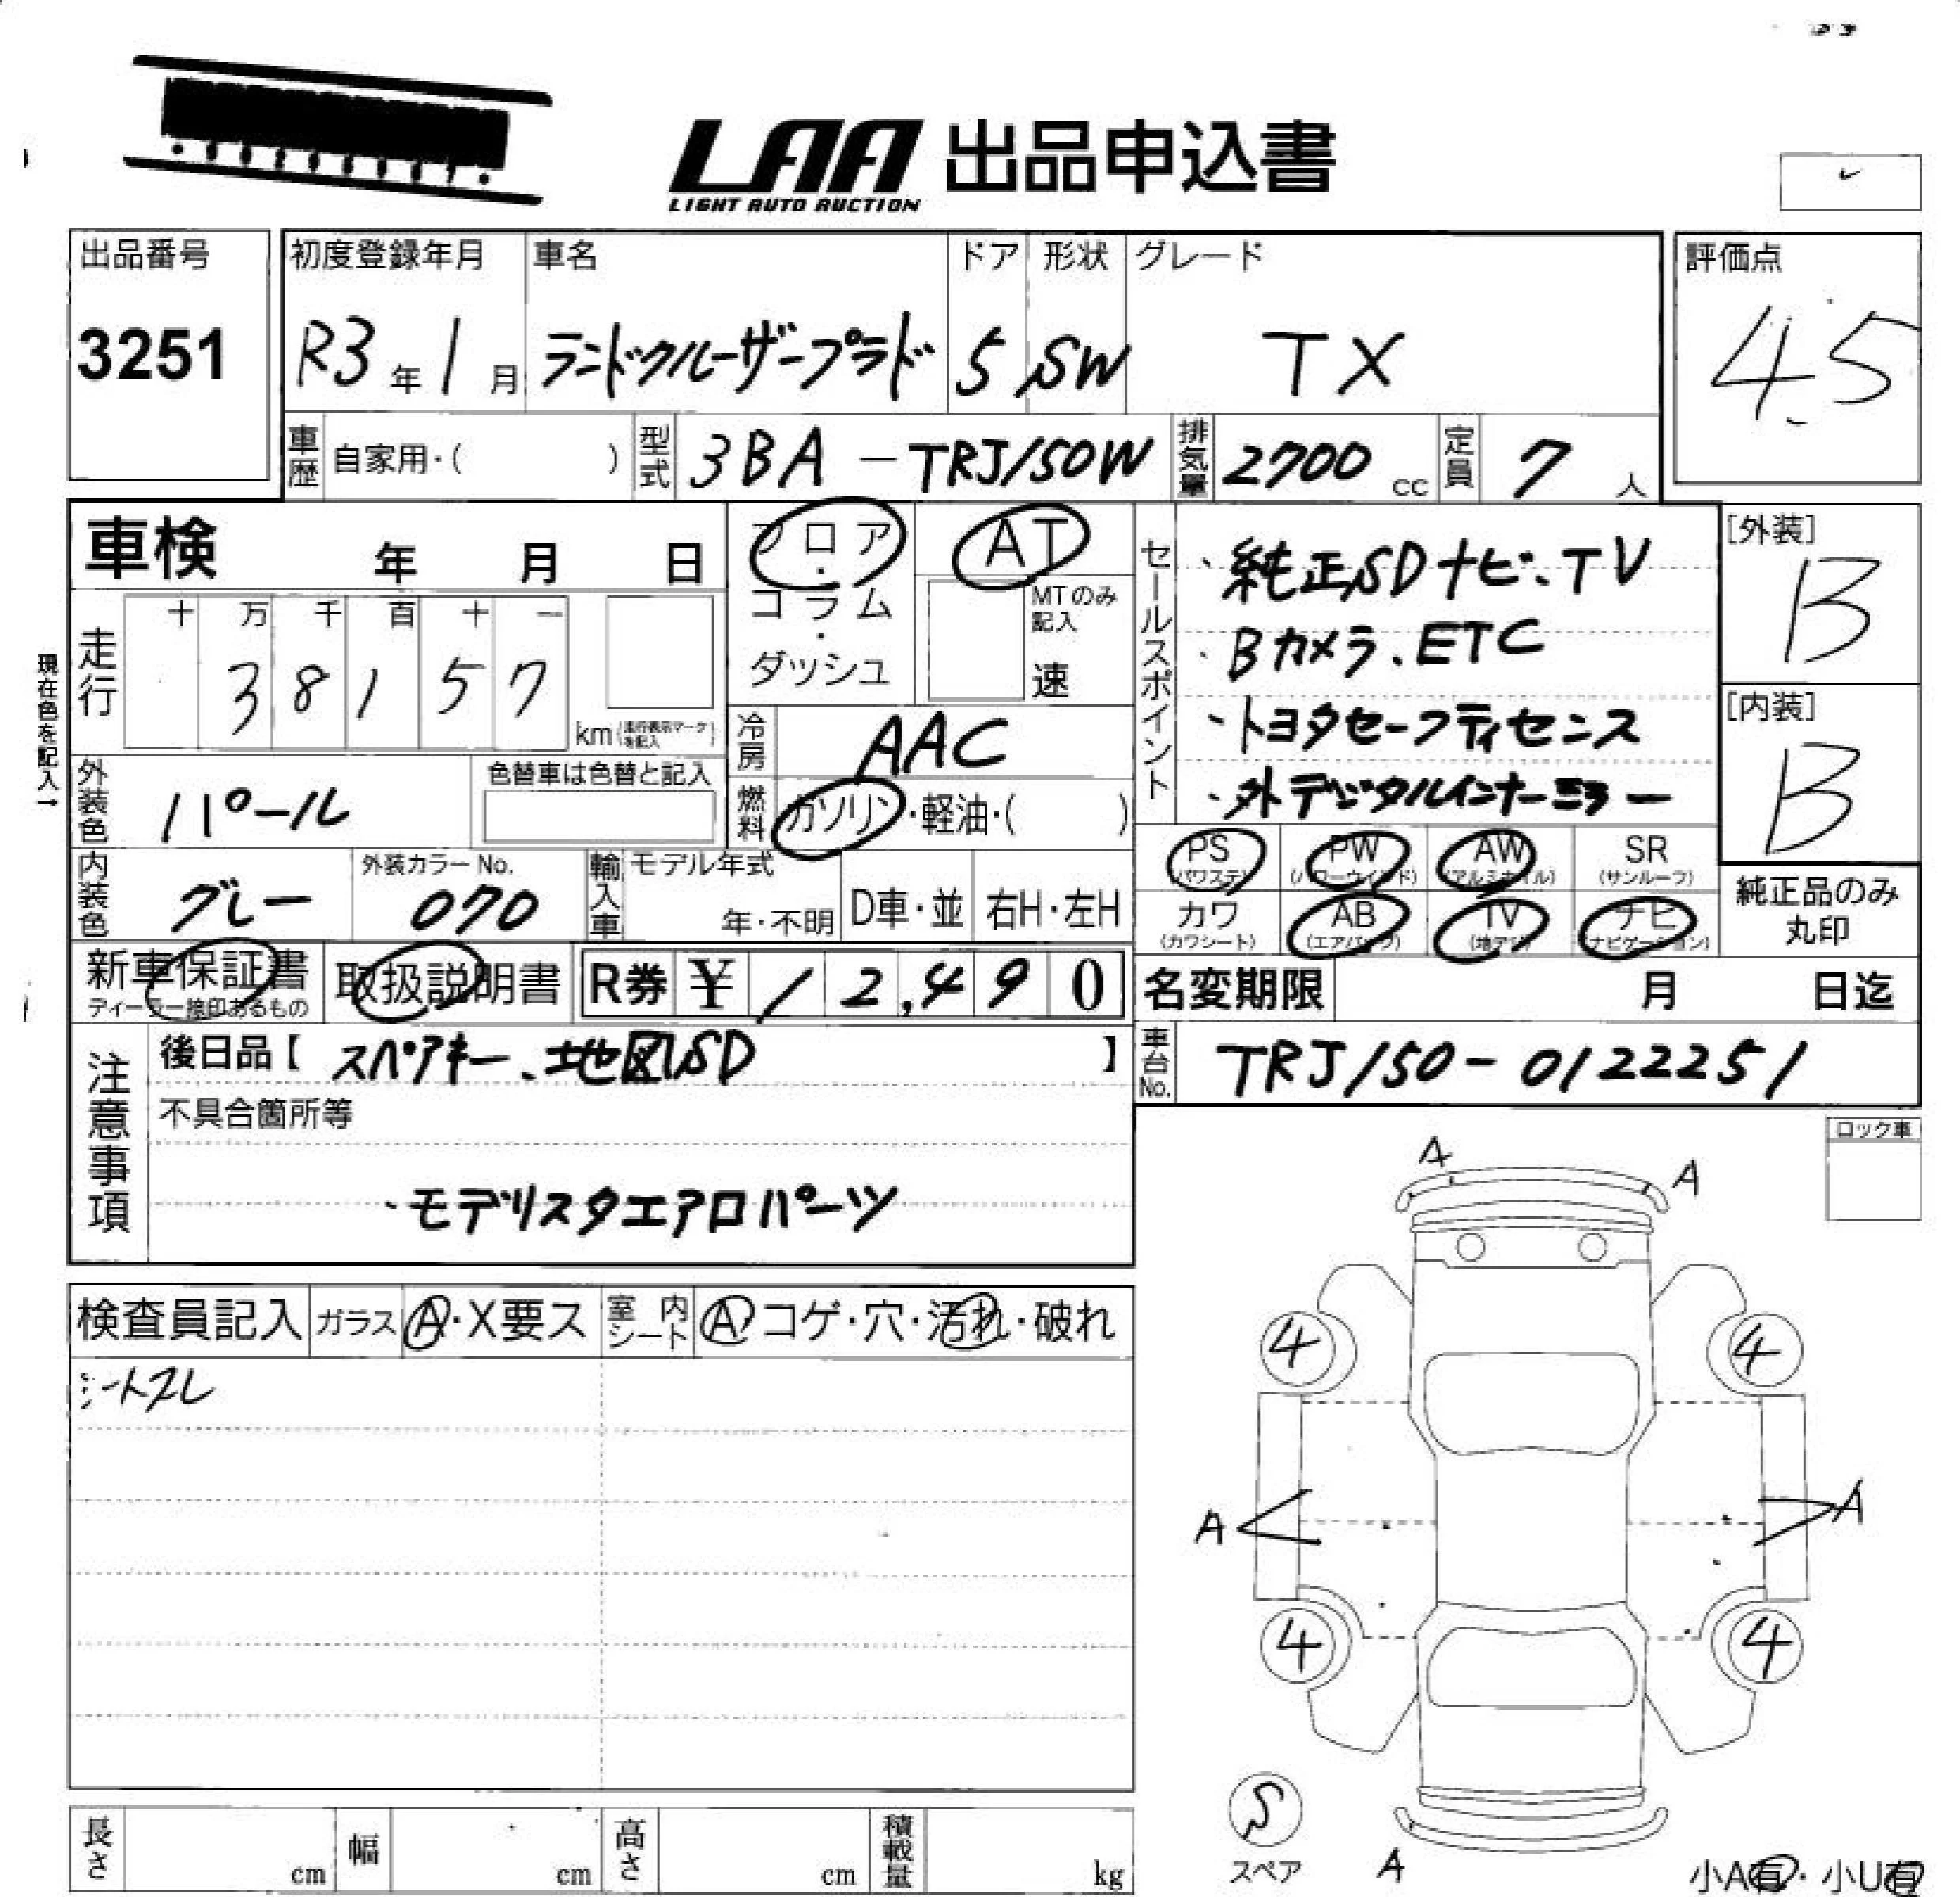 LAA 出品申込書
LIGHT AUTO AUCTION
出品番号 初度登録年月 車名 ドア 形状 グレード 評価点
3251 R3年1月 ランドクルーザープラド 5 SW TX 4.5
車歴 自家用・( ) 型式 3BA-TRJ150W 排気量 2700 cc 定員 7 人
車検 年 月 日
フロア・コラム・ダッシュ
AT
MTのみ記入
速
現在色を記入→
走行 十 万 千 百 十 一
3 8 1 5 7
km(走行表示マークを記入)
冷房 AAC
外装色 パール
色替車は色替と記入
燃料 ガソリン・軽油・( )
内装色 グレー
外装カラーNo. 070
輸入車 モデル年式 年・不明 D車・並 右H・左H
セールスポイント
・純正SDナビ、TV
・Bカメラ、ETC
・トヨタセーフティセンス
・外デジタルインナーミラー
[外装] B
[内装] B
PS (パワステ) PW (パワーウィンド) AW (アルミホイル) SR (サンルーフ)
カワ (カワシート) AB (エアバッグ) TV (地デジ) ナビ (ナビゲーション)
純正品のみ丸印
新車保証書 ディーラー捺印あるもの 取扱説明書 R券 ¥ 1 2,4 9 0
名変期限 月 日迄
車台No. TRJ150-0122251
注意事項
後日品【 スペアキー、地図SD 】
不具合箇所等
・モデリスタエアロパーツ
ロック車
A A
検査員記入 ガラス A・X要ス 室内シート A コゲ・穴・汚れ・破れ
シートスレ
4 4
A A
4 4
S
スペア
A
小A有・小U有
長さ cm 幅 cm 高さ cm 積載量 kg